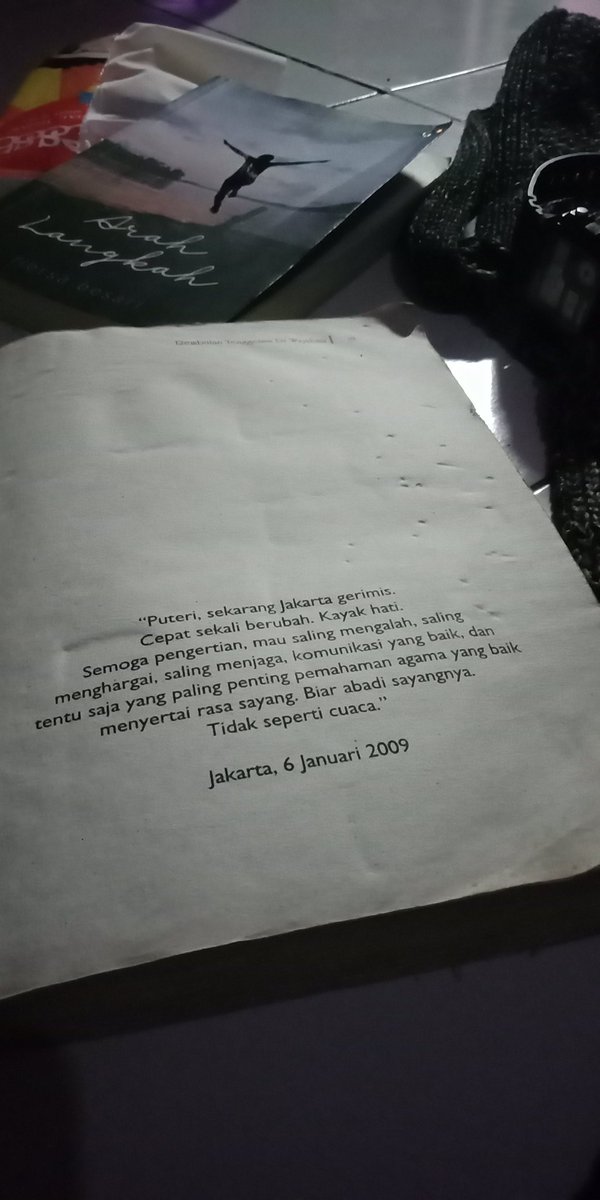 Arah
Langkah
"Puteri, sekarang Jakarta gerimis.
Cepat sekali berubah. Kayak hati.
Semoga pengertian, mau saling mengalah, saling
menghargai, saling menjaga, komunikasi yang baik, dan
tentu saja yang paling penting pemahaman agama yang baik
menyertai rasa sayang. Biar abadi sayangnya.
Tidak seperti cuaca."
Jakarta, 6 Januari 2009